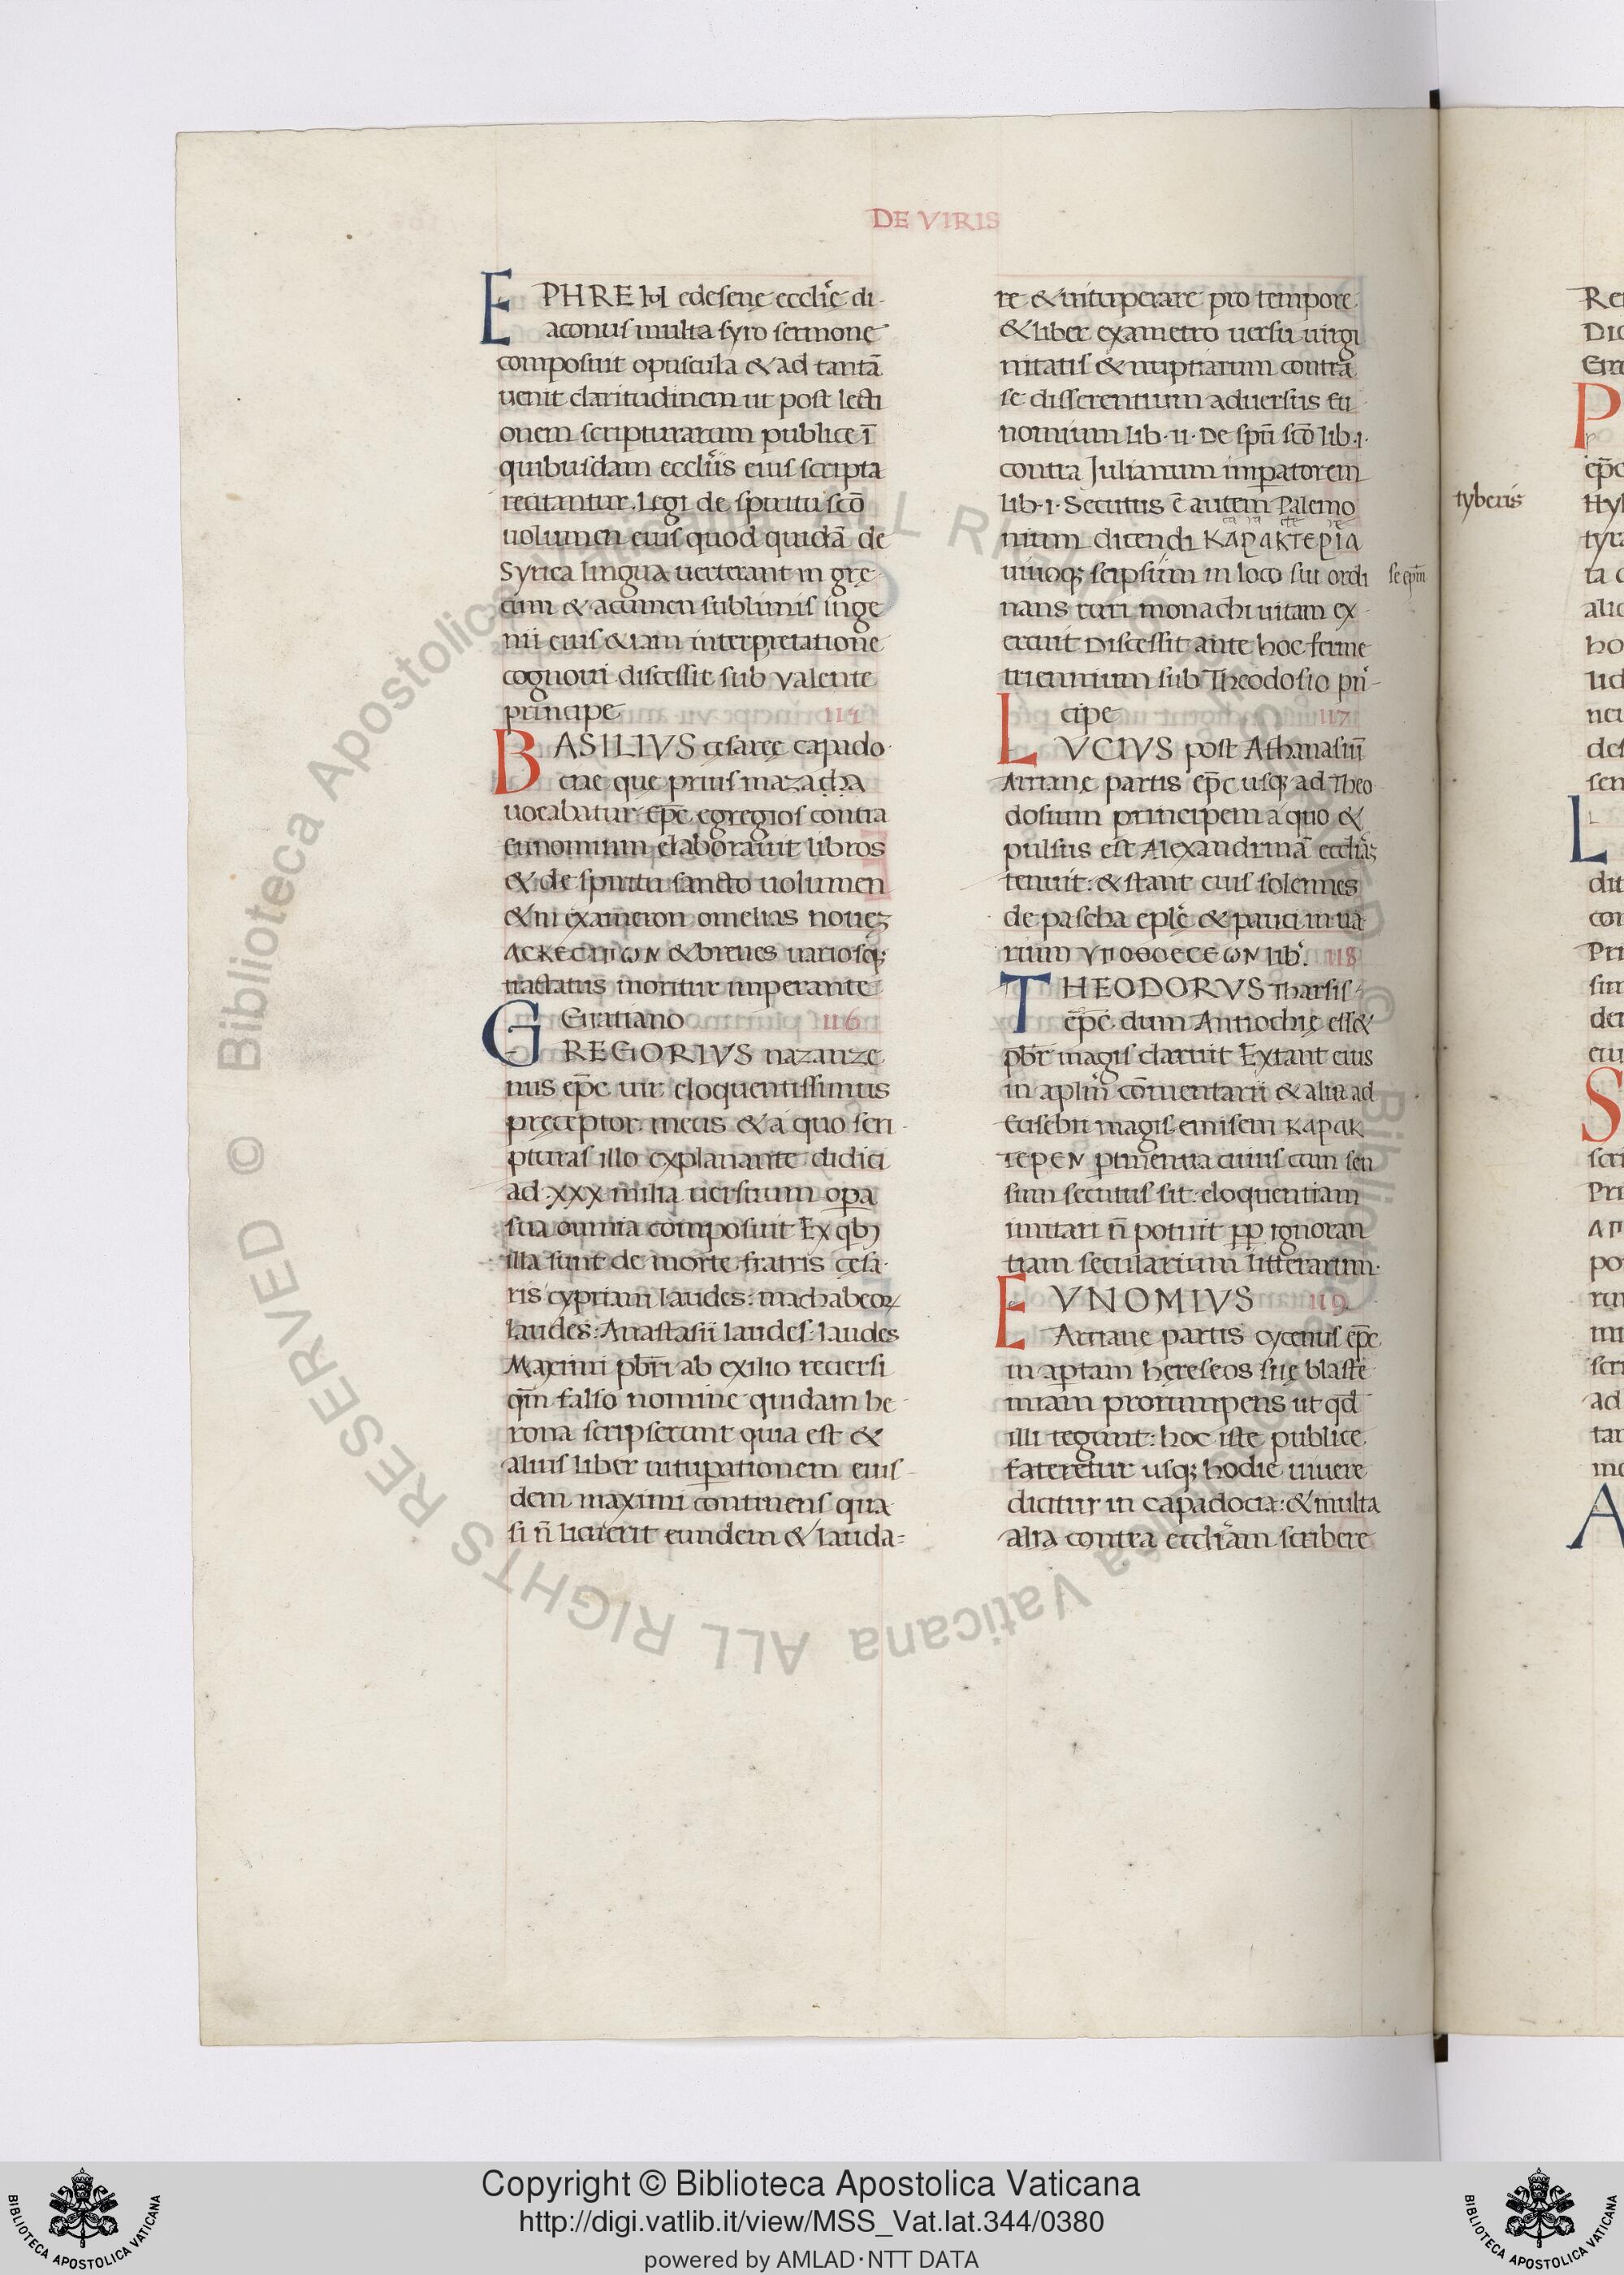 DE VIRIS
EPHREM edesenę eccľię di-
aconus multa syro sermone
composuit opuscula & ad tantā
uenit claritudinem ut post lecti
onem scripturarum publice ī
quibusdam eccľiis eius scripta
recitantur. Legi de spiritu scō
uolumen eius quod quidā de
Syrica lingua uerterant in grę
cum & acumen sublimis inge
nii eius &iam interpretatione
cognoui discessit sub valente
principe
BASILIVS cesareę capado
ciae que prius mazacha
uocabatur ep̄c egregios contra
eunomium elaborauit libros
& de spiritu sancto uolumen
& in exameron omelias nouę
ACKECTIΠωN & breues uariosq;
tractatus moritur imperante
Gratiano 116
GREGORIVS nazanze
nus ep̄c uir eloquentissimus
pręceptor meus & a quo scri
pturas illo explanante didici
ad .xxx milia uersuum opa
sua omnia composuit Ex qbꝫ
illa sunt de morte fratris cesa
ris cypriani laudes: machabeoꝝ
laudes: Anastasii laudes: laudes
Maximi pbr̄i ab exilio reuersi
qm̄ falso nomine quidam he
rona scripserunt quia est &
alius liber uituꝑationem eius
dem maximi continens qua
si n̄ licuerit eundem & lauda=
re & uituperare pro tempore
& liber exametro uersu uirgi
nitatis & nuptiarum contra
se disserentium aduersus Eu
nomium lib. II. De spū scō lib. I.
contra Julianum impatorem
lib. I. Secutus ē autem Palemo
nium dicendi KAPAKTEPIA
uiuoq; seipsum in loco sui ordi
se ep̄m
nans ruri monachi uitam ex
ercuit Discessit ante hoc ferme
triennium sub Theodosio pri-
cipe 117
LVCIVS post Athanasiū
Arrianę partis ep̄c usq; ad Theo
dosium principem a quo &
pulsus est Alexandrinā
tenuit: & stant eius solennes
de pascha epľe & pauci in ua
rium ΥΠΟΘΟΕCΕωN lib. 118
THEODORVS Tharsis
ep̄c dum Antiochię ess&
pbr̄ magis claruit Extant eius
in commentarii & alia ad
Eusebii magis emiseni KAPAK
TEPEN ptinentia cuius cum sen
sum secutus sit: eloquentiam
imitari n̄ potuit pp ignoran
tiam secularium litterarum.
EVNOMIVS 119
Arrianę partis cycenus ep̄c
in aptam hereseos suę blasfe
miam prorumpens ut qd
illi tegunt: hoc iste publice
fateretur usq; hodie uiuere
dicitur in capadocia: & multa
alia contra eccľiam scribere
tyberis
Copyright © Biblioteca Apostolica Vaticana
http://digi.vatlib.it/view/MSS_Vat.lat.344/0380
powered by AMLAD·NTT DATA
BIBLIOTECA APOSTOLICA VATICANA
BIBLIOTECA APOSTOLICA VATICANA
© Biblioteca Apostolica Vaticana ALL RIGHTS RESERVED